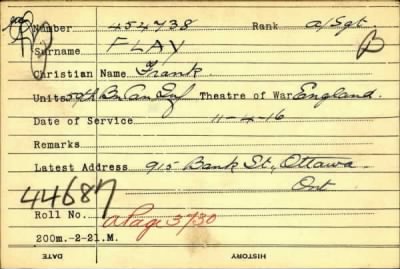 Number 454738 Rank a/Sgt.
Surname FLAY B
Christian Name Frank.
Units 59th Bn Can Inf Theatre of War England.
Date of Service 11-4-16
Remarks
Latest Address 915 Bank St., Ottawa
Ont
44687
Roll No. A Page 3730
200m.-2-21.M.
DATE HISTORY